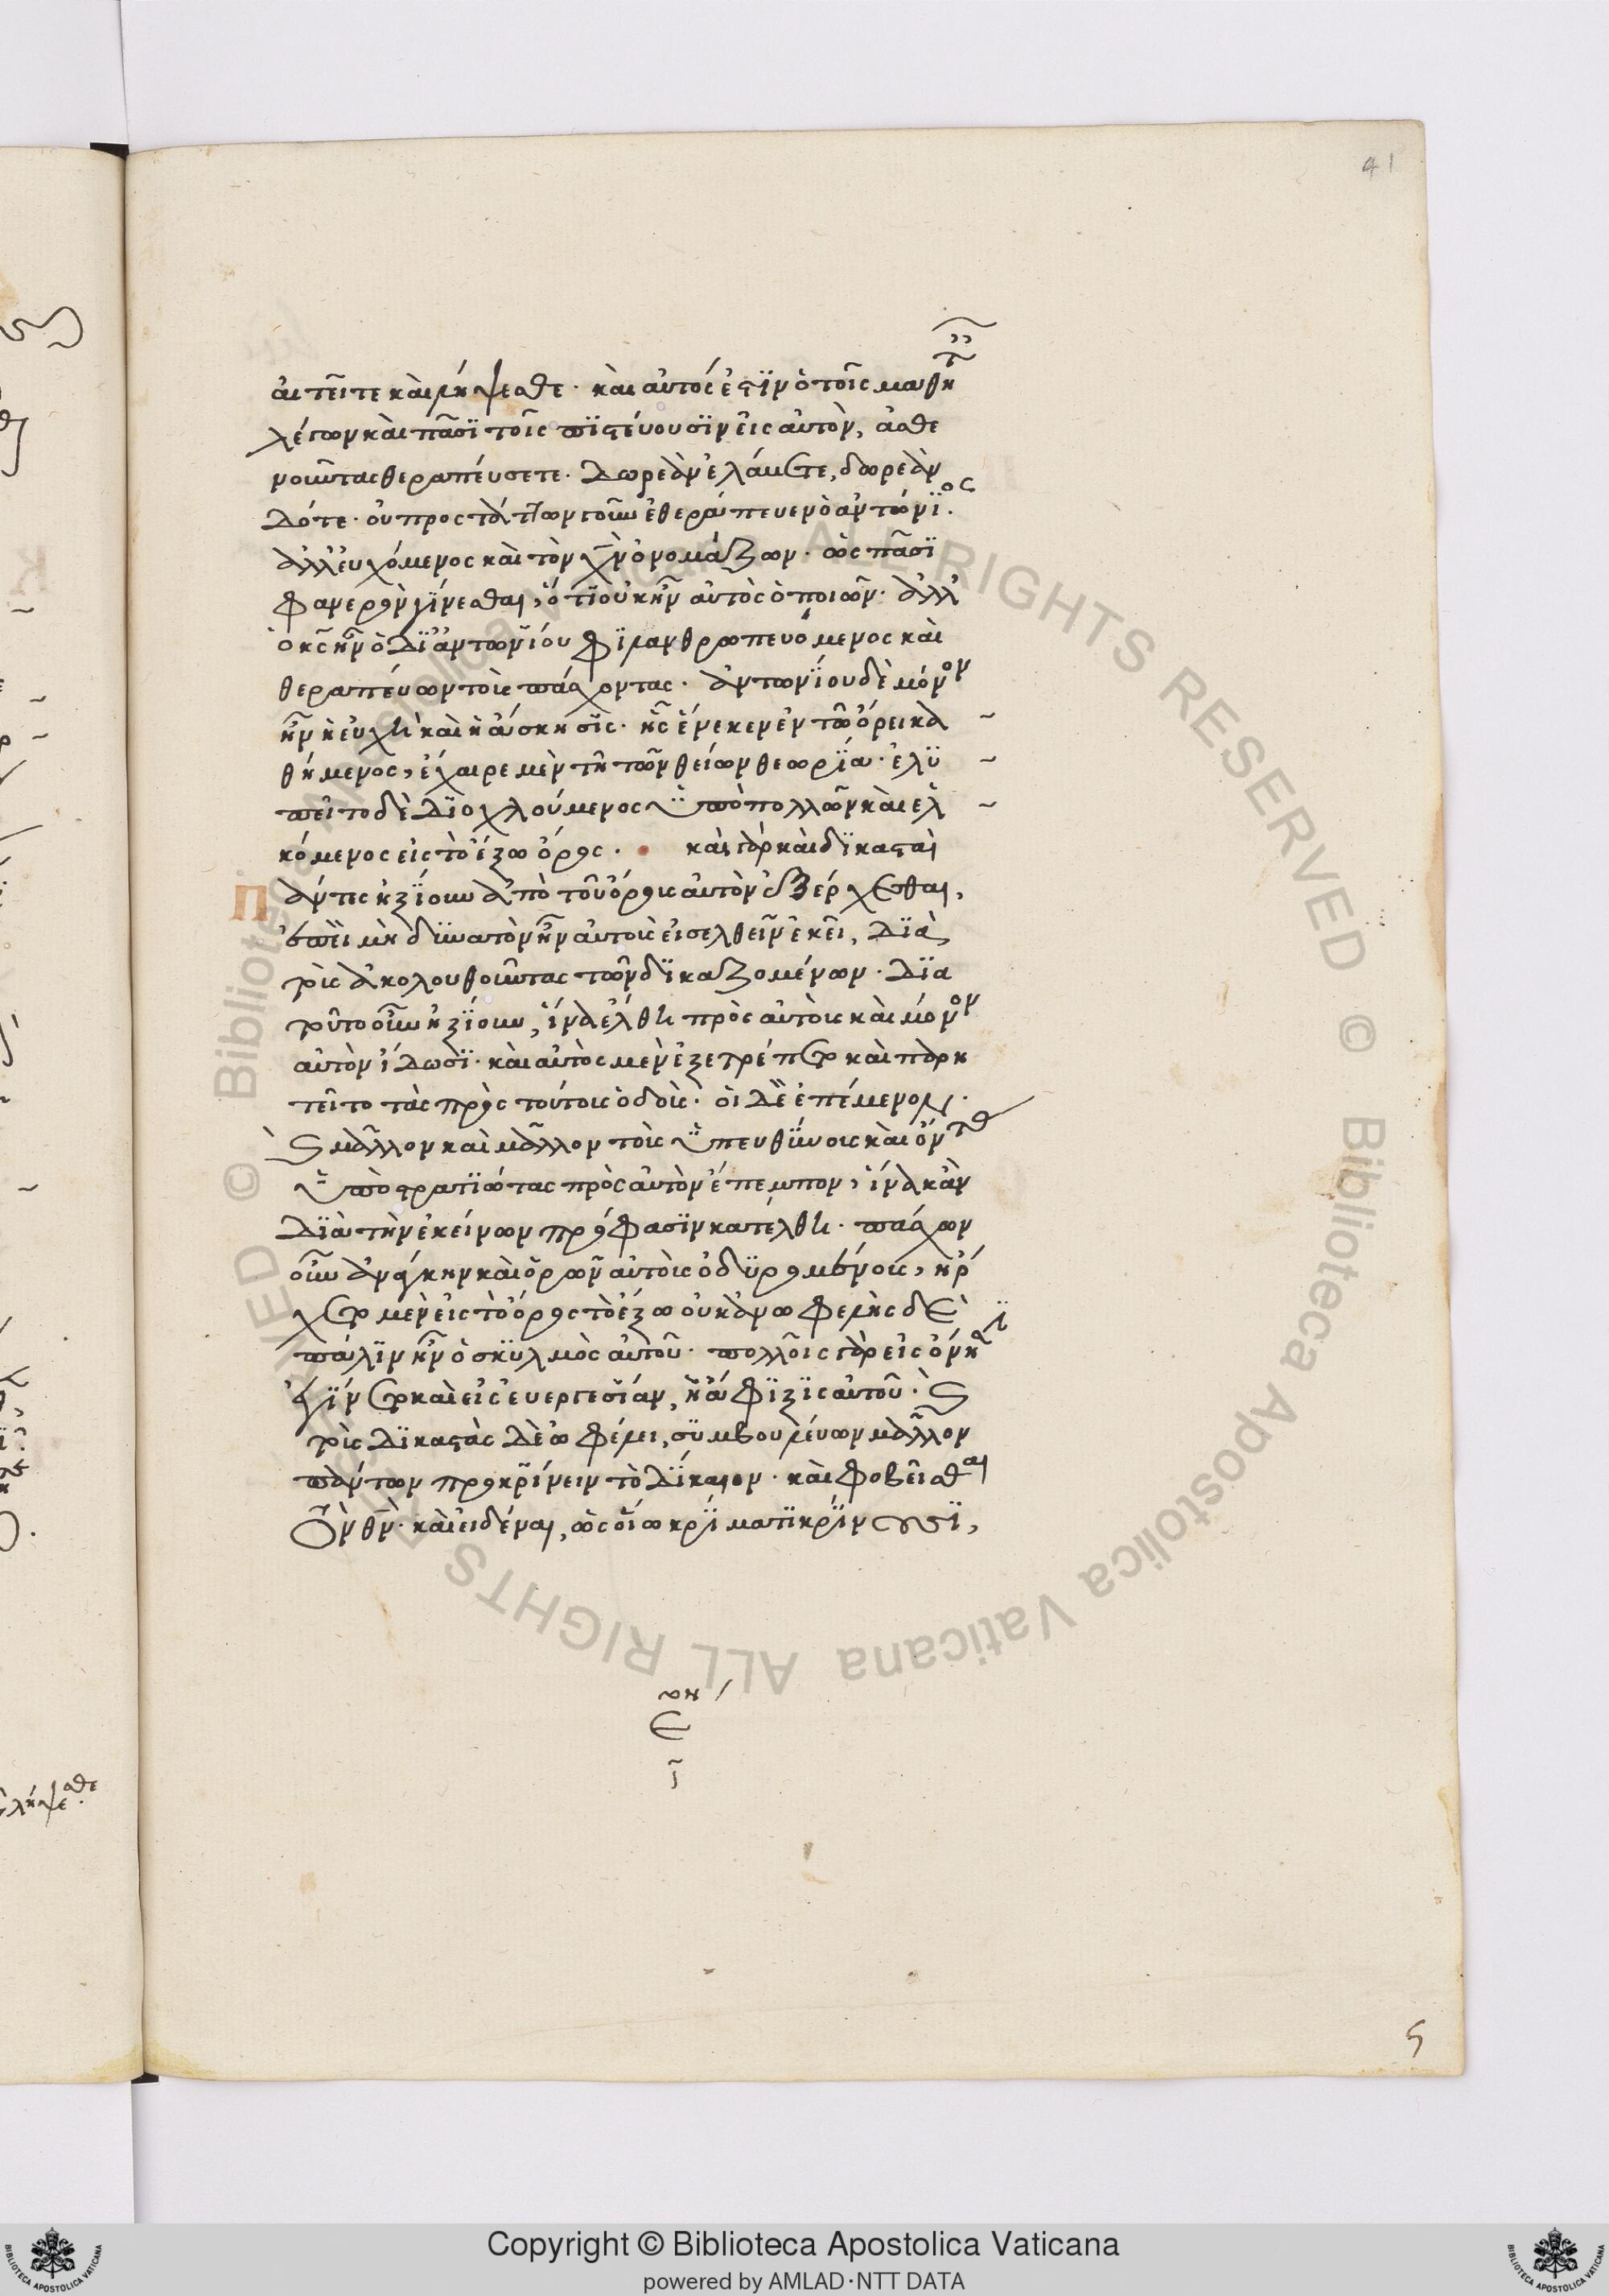 41
αἰτεῖτε καὶ λήψεσθε· καὶ αὐτός ἐστϊν ὁ τοῖς μαθητ
λέγων καὶ πᾶσϊ τοῖς πϊστεύουσϊν εἰς αὐτὸν, ἀσθε
νοῦντας θεραπεύσετε· δωρεὰν ἐλάβετε, δωρεὰν
δότε· οὐ προστάττων γοῦν ἐθεράπευεν ὁ ἀντώνϊος·
ἀλλ' εὐχόμενος καὶ τὸν χν ὀνομάζων· ὡς πᾶσϊ
φανερὸν γίνεσθαι, ὅτϊ οὐκ ἦν αὐτὸς ὁ ποιῶν· ἀλλ'
ὁ κς ἦν ὁ δϊ' ἀντωνίου φϊλανθρωπευόμενος καὶ
θεραπεύων τοὺς πάσχοντας· ἀντωνίου δὲ μόνον
ἦν ἡ εὐχὴ καὶ ἡ ἄσκησϊς· ἧς ἕνεκεν ἐν τῶ ὄρει κα
θήμενος, ἔχαιρε μὲν τῆ τῶν θείων θεωρία· ἐλϋ
πεῖτο δὲ δϊοχλούμενος ϋπὸ πολλῶν καὶ ἑλ
κόμενος εἰς τὸ ἔξω ὄρος· καὶ γὰρ καὶ δϊκασταὶ
πάντες ἠξίουν ἀπὸ τοῦ ὄρους αὐτὸν κατέρχεσθαι,
ἐπεὶ μὴ δϋνατὸν ἦν αὐτοὺς εἰσελθεῖν ἐκεῖ, δϊὰ
τοὺς ἀκολουθοῦντας τῶν δϊκαζομένων· δϊα
τοῦτο οὖν ἠξίουν, ἵνα ἔλθη πρὸς αὐτοὺς καὶ μόνον
αὐτὸν ἴδωσϊ· καὶ αὐτὸς μὲν ἐξετρέπετο καὶ παρη
τεῖτο τὰς πρὸς τούτους ὁδούς· οἱ δὲ ἐπέμενον·
καὶ μᾶλλον καὶ μᾶλλον τοὺς ϋπευθϋνους καὶ ὄντας
ϋπὸ στρατϊώτας πρὸς αὐτὸν ἔπεμπον, ἵνα κἂν
δϊὰ τὴν ἐκείνων πρόφασϊν κατέλθη· πάσχων
οὖν ἀνάγκην καὶ ὁρῶν αὐτοὺς ὀδϋρομένους, ἤρ
χετο μὲν εἰς τὸ ὄρος τὸ ἔξω οὐκ ἀνωφελὴς δὲ
πάλϊν ἦν ὁ σκϋλμὸς αὐτοῦ· πολλοῖς γὰρ εἰς ὄνησϊ
ἐγίνετο καὶ εἰς εὐεργεσίαν, ἡ ἄφϊξϊς αὐτοῦ· καὶ
τοὺς δϊκαστὰς δὲ ὠφέλει, σϋμβουλεύων μᾶλλον
πάντων προκρίνειν τὸ δίκαιον· καὶ φοβεῖσθαι
τὸν θν· καὶ εἰδέναι, ὡς ὅτϊ ὧ κρίματϊ κρίνουσϊ,